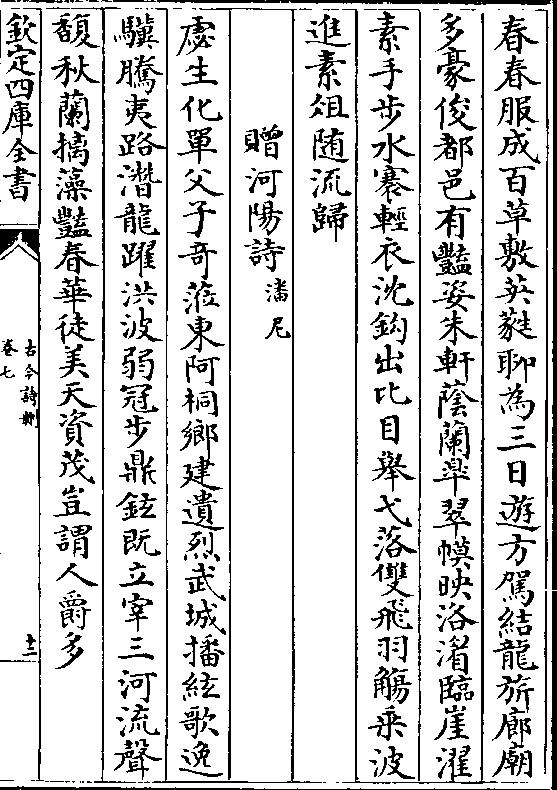 春春服成百草敷英蕤聊為三日遊方駕結龍旂廊廟
多豪俊都邑有豔姿朱軒蔭蘭臯翠幙映洛湄臨崖濯
素手步水褰輕衣沈鈎出比目舉弋落雙飛羽觴乘波
進素俎随流歸
贈河陽詩潘尼
虙生化單父子奇蒞東阿桐鄉建遺烈武城播絃歌逸
驥騰夷路潛龍躍洪波弱冠步鼎鉉既立宰三河流聲
馥秋蘭摛藻豔春華徒美天資茂豈謂人爵多
欽定四庫全書
古今詩刪
卷七
十二